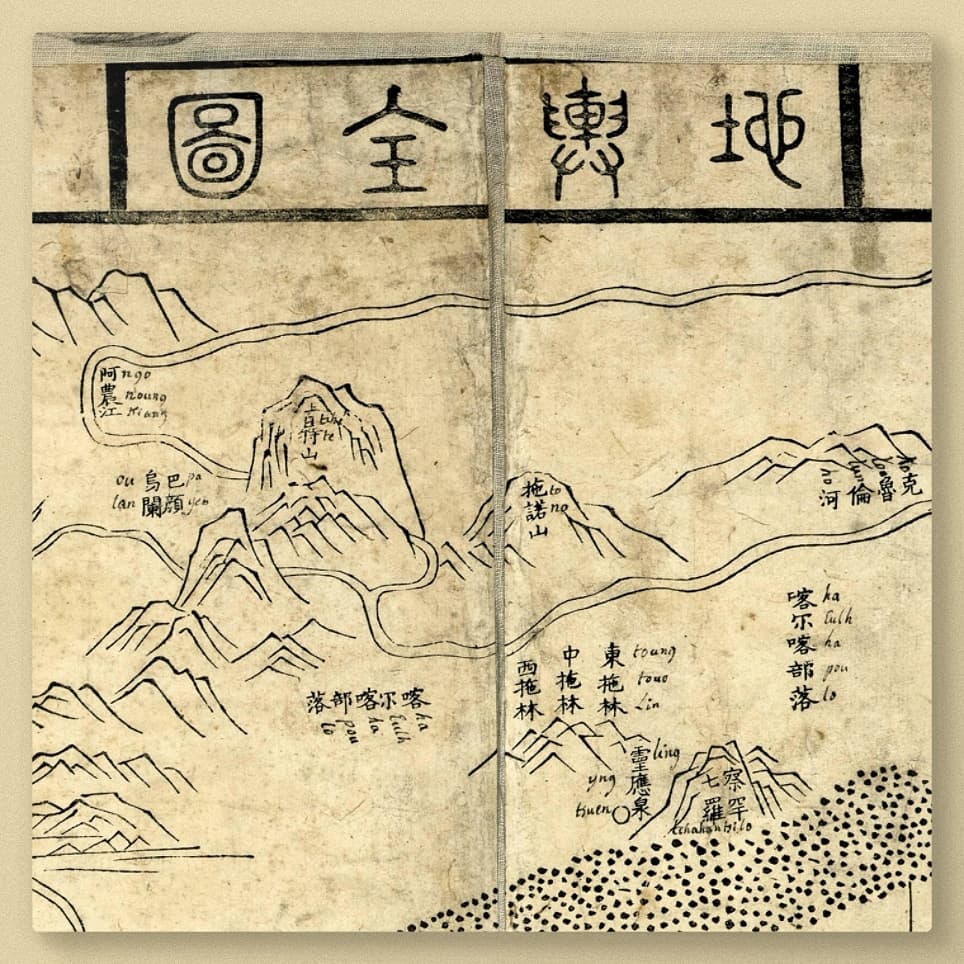 地輿全圖
克魯倫河
喀尔喀部落
ha
Eulh
ha
pou
lo
拖諾山
to
no
肯特山
te
阿農江
ngo
noung
Kiang
巴顏
pa
yen
烏闌
ou
lan
東拖林
toung
touo
Lin
中拖林
西拖林
喀尔喀部落
ka
Eulh
ka
pou
lo
靈應泉
ling
yng
tsuen
察罕
七羅
tchahantsilo